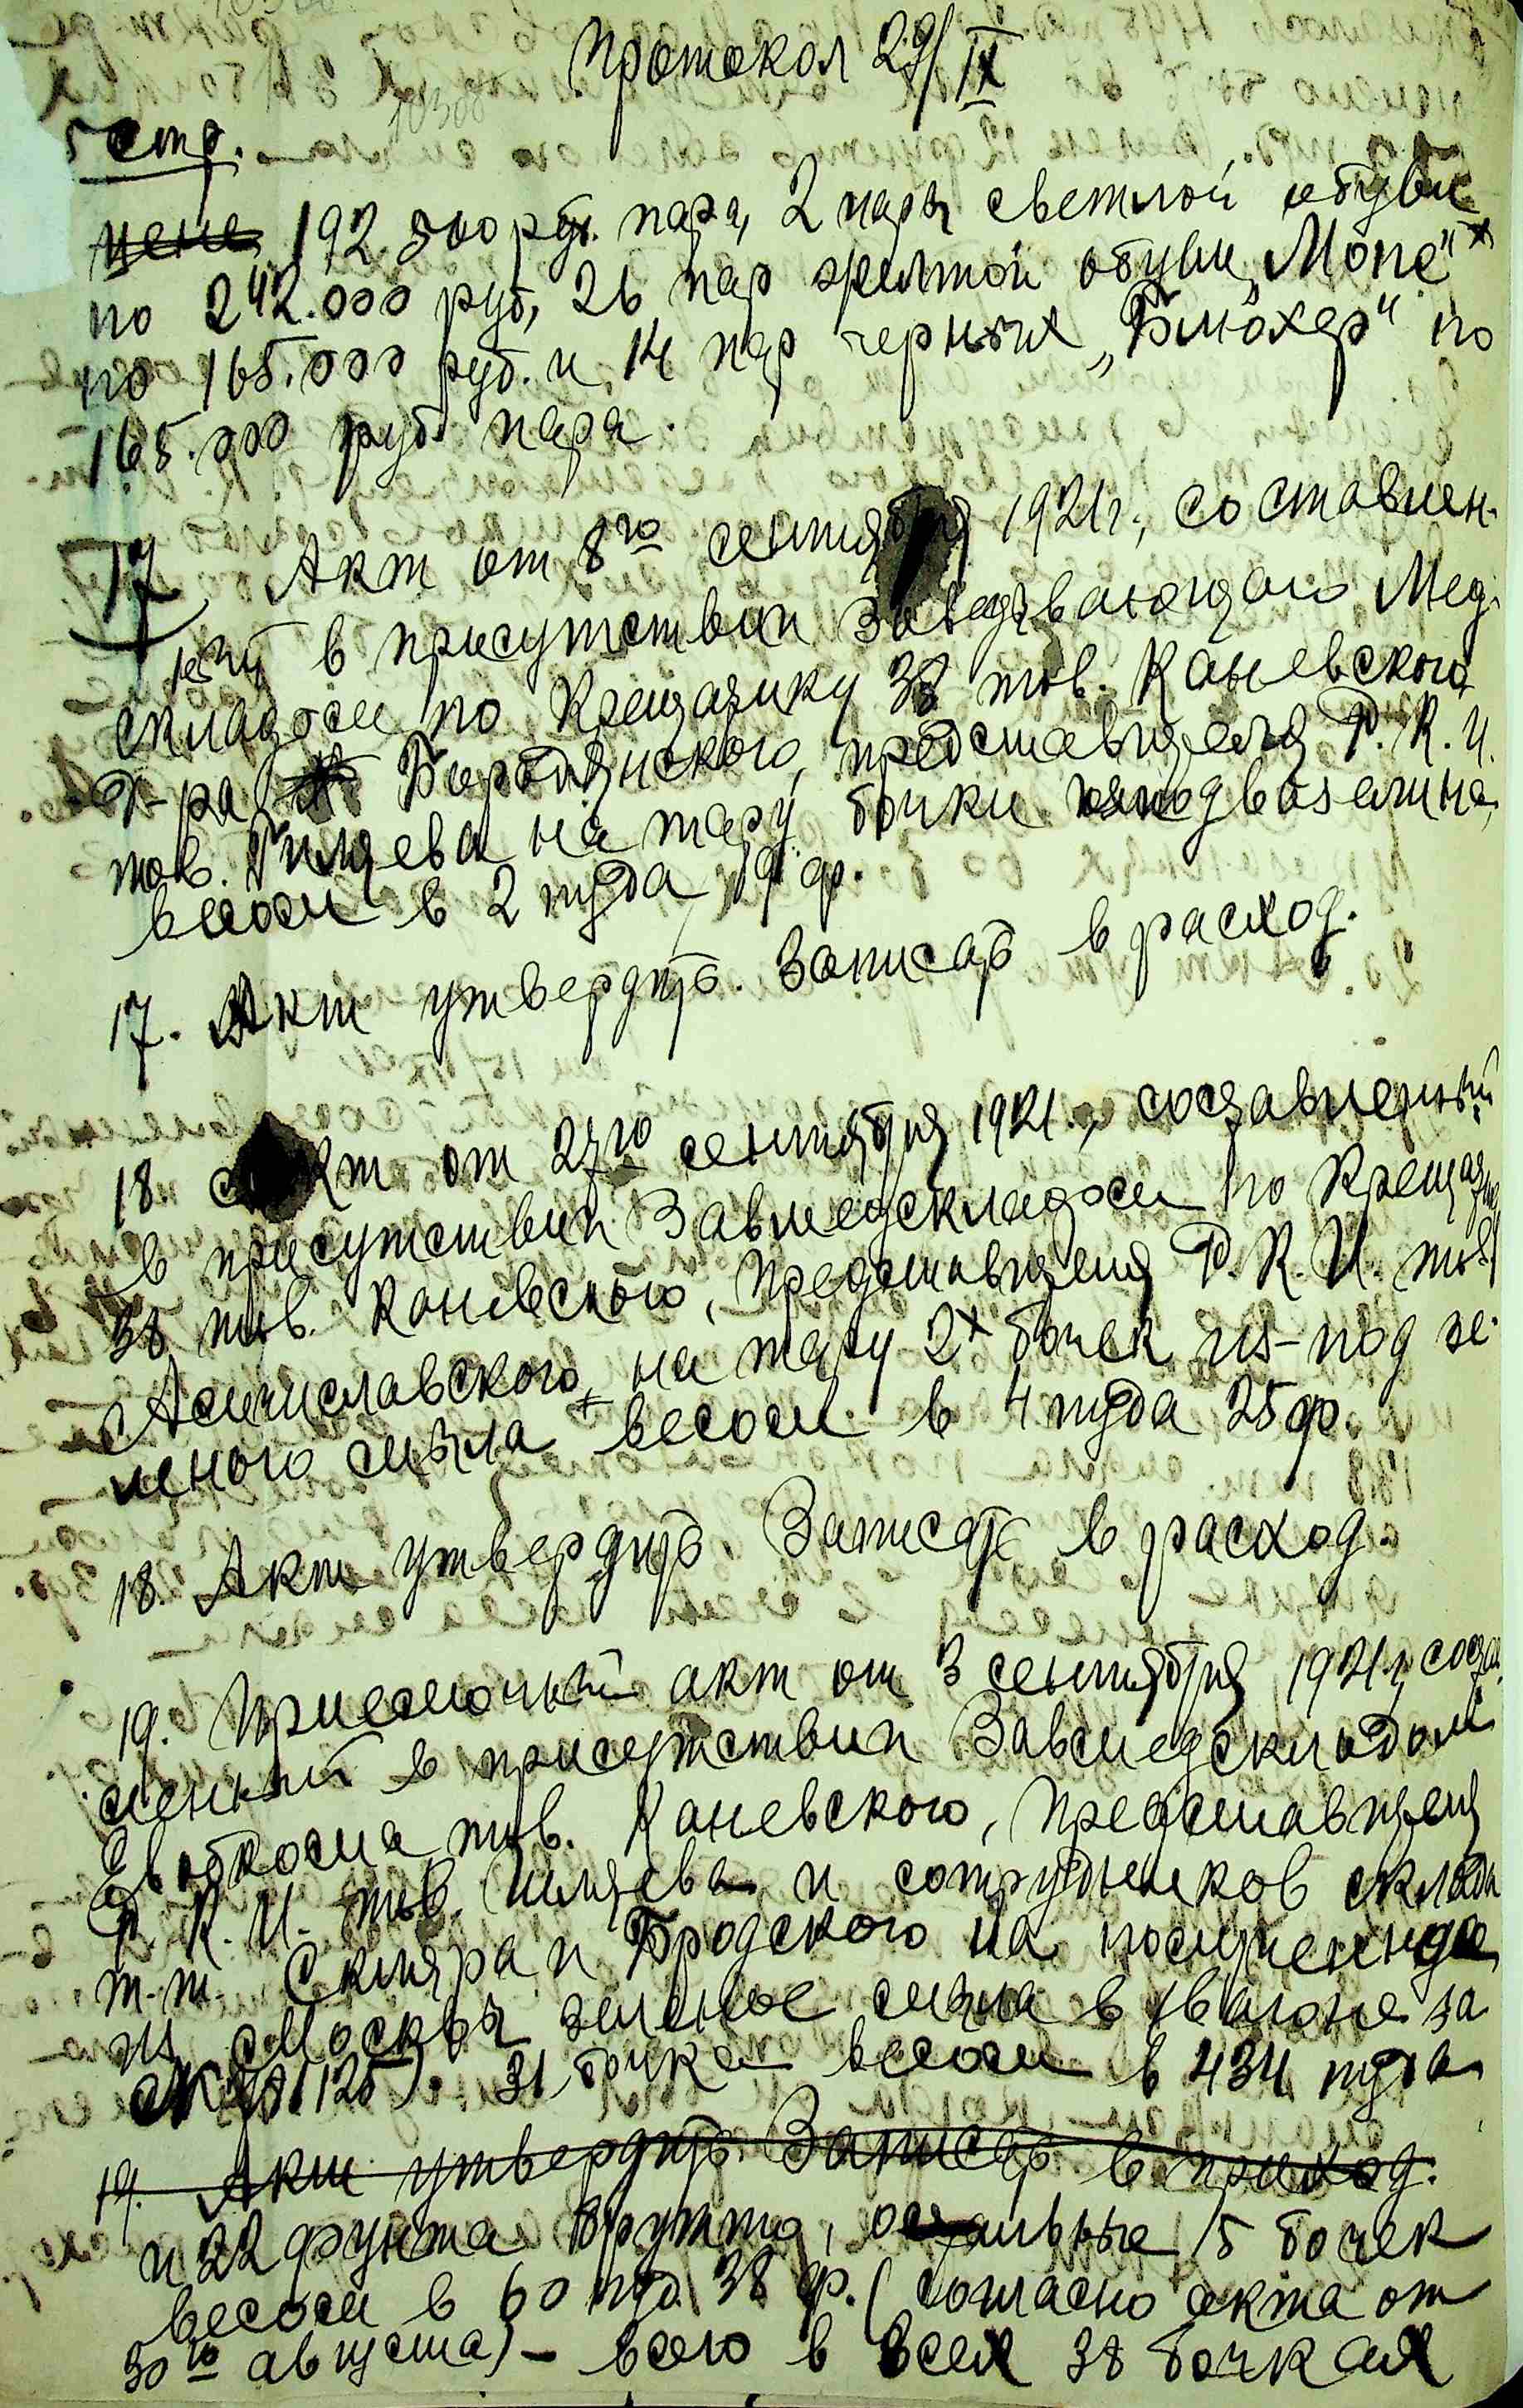 Протокол 29/IX
5 стр.
цене 192.500 руб. пара, 2 пары светлой обуви
по 242.000 руб, 26 пар желтой обуви „Мопе"
по 165.000 руб. и 14 пар черных „Блюхер" по
165.000 руб. пара.
17 Акт от 8го сентября 1921г., составлен-
ный в присутствии заведывающаго Мед.
складом по Крещатику 38 тов. Каневского
д-ра Бородянского, представителя Р.К.И.
тов. на тару бочки из под вазелина,
весом в 2 пуда 19 ф.
17. Акт утвердить. Записать в расход.
18 Акт от 27го сентября 1921., составленный
в присутствии Завмедскладом по Крещатику
38 тов. Каневского, представителя Р.К.И. тов.
на тару 2х бочек из-под зе-
леного мыла весом в 4 пуда 25 ф.
18. Акт утвердить. Записать в расход.
19. Приемочный акт от 3 сентября 1921г, состав
ленный в присутствии Завмедскладом
тов. Каневского, представителя
Р.К.И. тов. и сотрудников склада
т.т. Скляра и Бродского на
из Москвы зеленое мыла в (вагоне за
31 бочка весом в 434 пуда
19. Акт утвердить. Записать в приход.
и 22 фунта брутто, остальные 5 бочек
весом в 60 пуд 38 ф. (согласно акта от
30го августа) - всего в всех 38 бочках